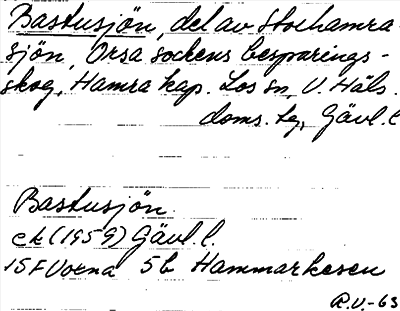 Bastusjön, del av Storhamra
sjön, Orsa sockens besparings-
skog, Hamra kap. Los sn, V. Häls.
doms. tg, Gävl. l
Bastusjön.
ek (1959) Gävl. l.
15F Voxna 5b Hammarkesen
R.V.-63